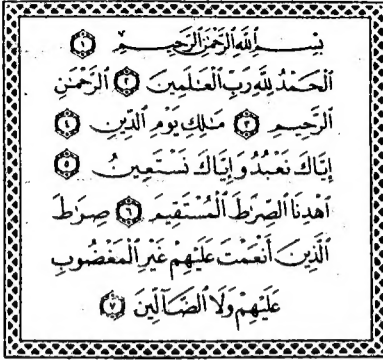 بِسْمِ ٱللَّهِ ٱلرَّحْمَٰنِ ٱلرَّحِيمِ ۝١
ٱلْحَمْدُ لِلَّهِ رَبِّ ٱلْعَٰلَمِينَ ۝٢ ٱلرَّحْمَٰنِ
ٱلرَّحِيمِ ۝٣ مَٰلِكِ يَوْمِ ٱلدِّينِ ۝٤
إِيَّاكَ نَعْبُدُ وَإِيَّاكَ نَسْتَعِينُ ۝٥
ٱهْدِنَا ٱلصِّرَٰطَ ٱلْمُسْتَقِيمَ ۝٦ صِرَٰطَ
ٱلَّذِينَ أَنْعَمْتَ عَلَيْهِمْ غَيْرِ ٱلْمَغْضُوبِ
عَلَيْهِمْ وَلَا ٱلضَّآلِّينَ ۝٧